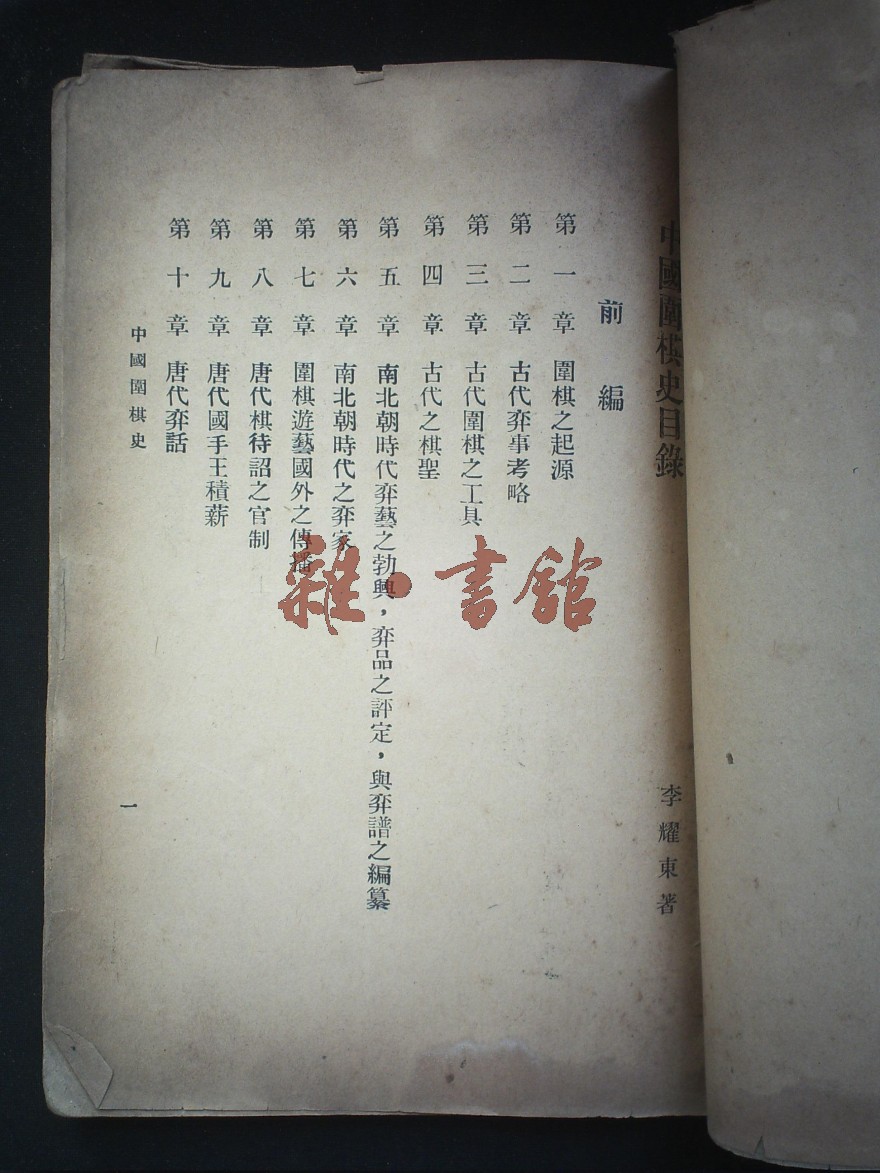 中國圍棋史目錄
李耀東著
前編
第一章 圍棋之起源
第二章 古代弈事考略
第三章 古代圍棋之工具
第四章 古代之棋聖
第五章 南北朝時代弈藝之勃興，弈品之評定，與弈譜之編纂
第六章 南北朝時代之弈家
第七章 圍棋遊藝國外之傳播
第八章 唐代棋待詔之官制
第九章 唐代國手王積薪
第十章 唐代弈話
中國圍棋史
一
雜·書館